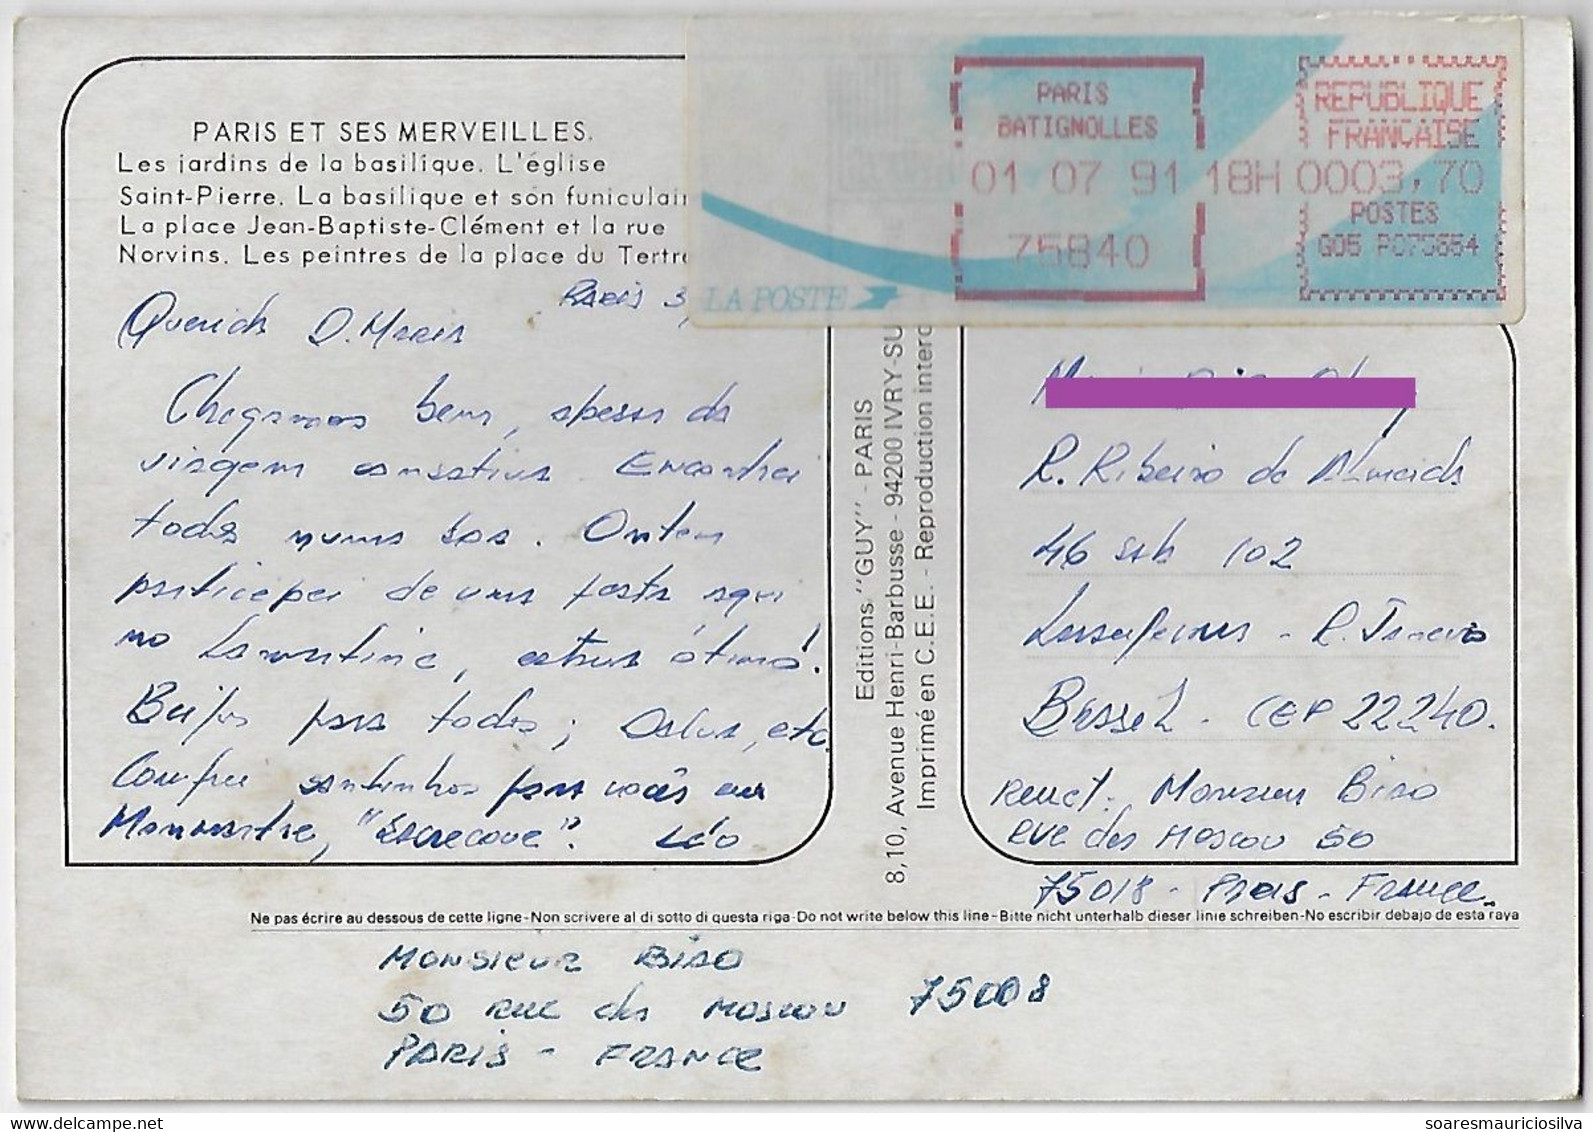 PARIS ET SES MERVEILLES.
Les jardins de la basilique. L'église
Saint-Pierre. La basilique et son funiculai
La place Jean-Baptiste-Clément et la rue
Norvins. Les peintres de la place du Tertre
PARIS
BATIGNOLLES
01 07 91 18H
75840
REPUBLIQUE
FRANÇAISE
0003,70
POSTES
G05 PC75654
LA POSTE
Paris 3
Querida D. Maria
Chegamos bem, apesar da
viagem cansativa. Encontrei
todos numa boa. Ontem
participei de uma festa aqui
no Lamartine, estava ótimo!
Beijos para todos; Oslus, etc.
Comprei santinhos para vocês em
Monmartre, "Sacrecoue". Léo
Editions "GUY" - PARIS
8,10, Avenue Henri-Barbusse - 94200 IVRY-SU
Imprimé en C.E.E. - Reproduction interd
R. Ribeiro de Almeida
46 sab 102
Laranjeiras - R. Janeiro
Brasil - CEP 22240.
Remet: Monsieur Biso
Rue des Moscou 50
75018 - Paris - France
Ne pas écrire au dessous de cette ligne-Non scrivere al di sotto di questa riga-Do not write below this line-Bitte nicht unterhalb dieser linie schreiben-No escribir debajo de esta raya
Monsieur Biso
50 Rue des Moscou 75008
Paris - France
soaresmauriciosilva